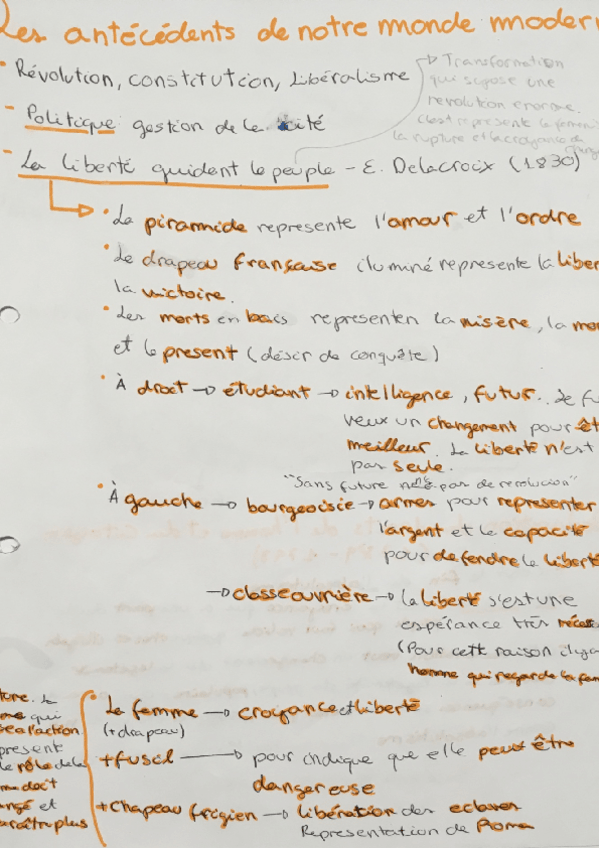 Les antécédents de notre monde moder
- Révolution, constitution, libéralisme
Transformation
que supose une
revolution enorme.
C'est représenté le femeni
la rupture et la croyance de
- Politique gestion de le cité
- La liberté guident le peuple - E. Delacroix (1830)
• La piramide represente l'amour et l'ordre
• Le drapeau française iluminé represente la liber
la victoire.
• Les morts en bas representen la misère, la mo
et le present (désir de conquête)
• À droit → étudiant → intelligence, futur. Le fu
veux un changement pour êt
meilleur. La liberté n'est
pas seule.
"Sans future n'as pas de revolucion"
• À gauche → bourgeoisie → armes pour representer
l'argent et le capacité
pour defendre le liberté
→ classe ouvrière → la liberté s'est une
espérance très néces
(Pour cett raison il y a
homme qui regarde la fam
• La femme → croyance et liberté
(+ drapeau)
+ fusil → pour indique que elle peut être
dangereuse
+ Chapeau frigien → libération des eclaves
Representation de Roma
ture. L
me qui
sea l'action
present
le rôle dela
me doit
angé et
araître plus